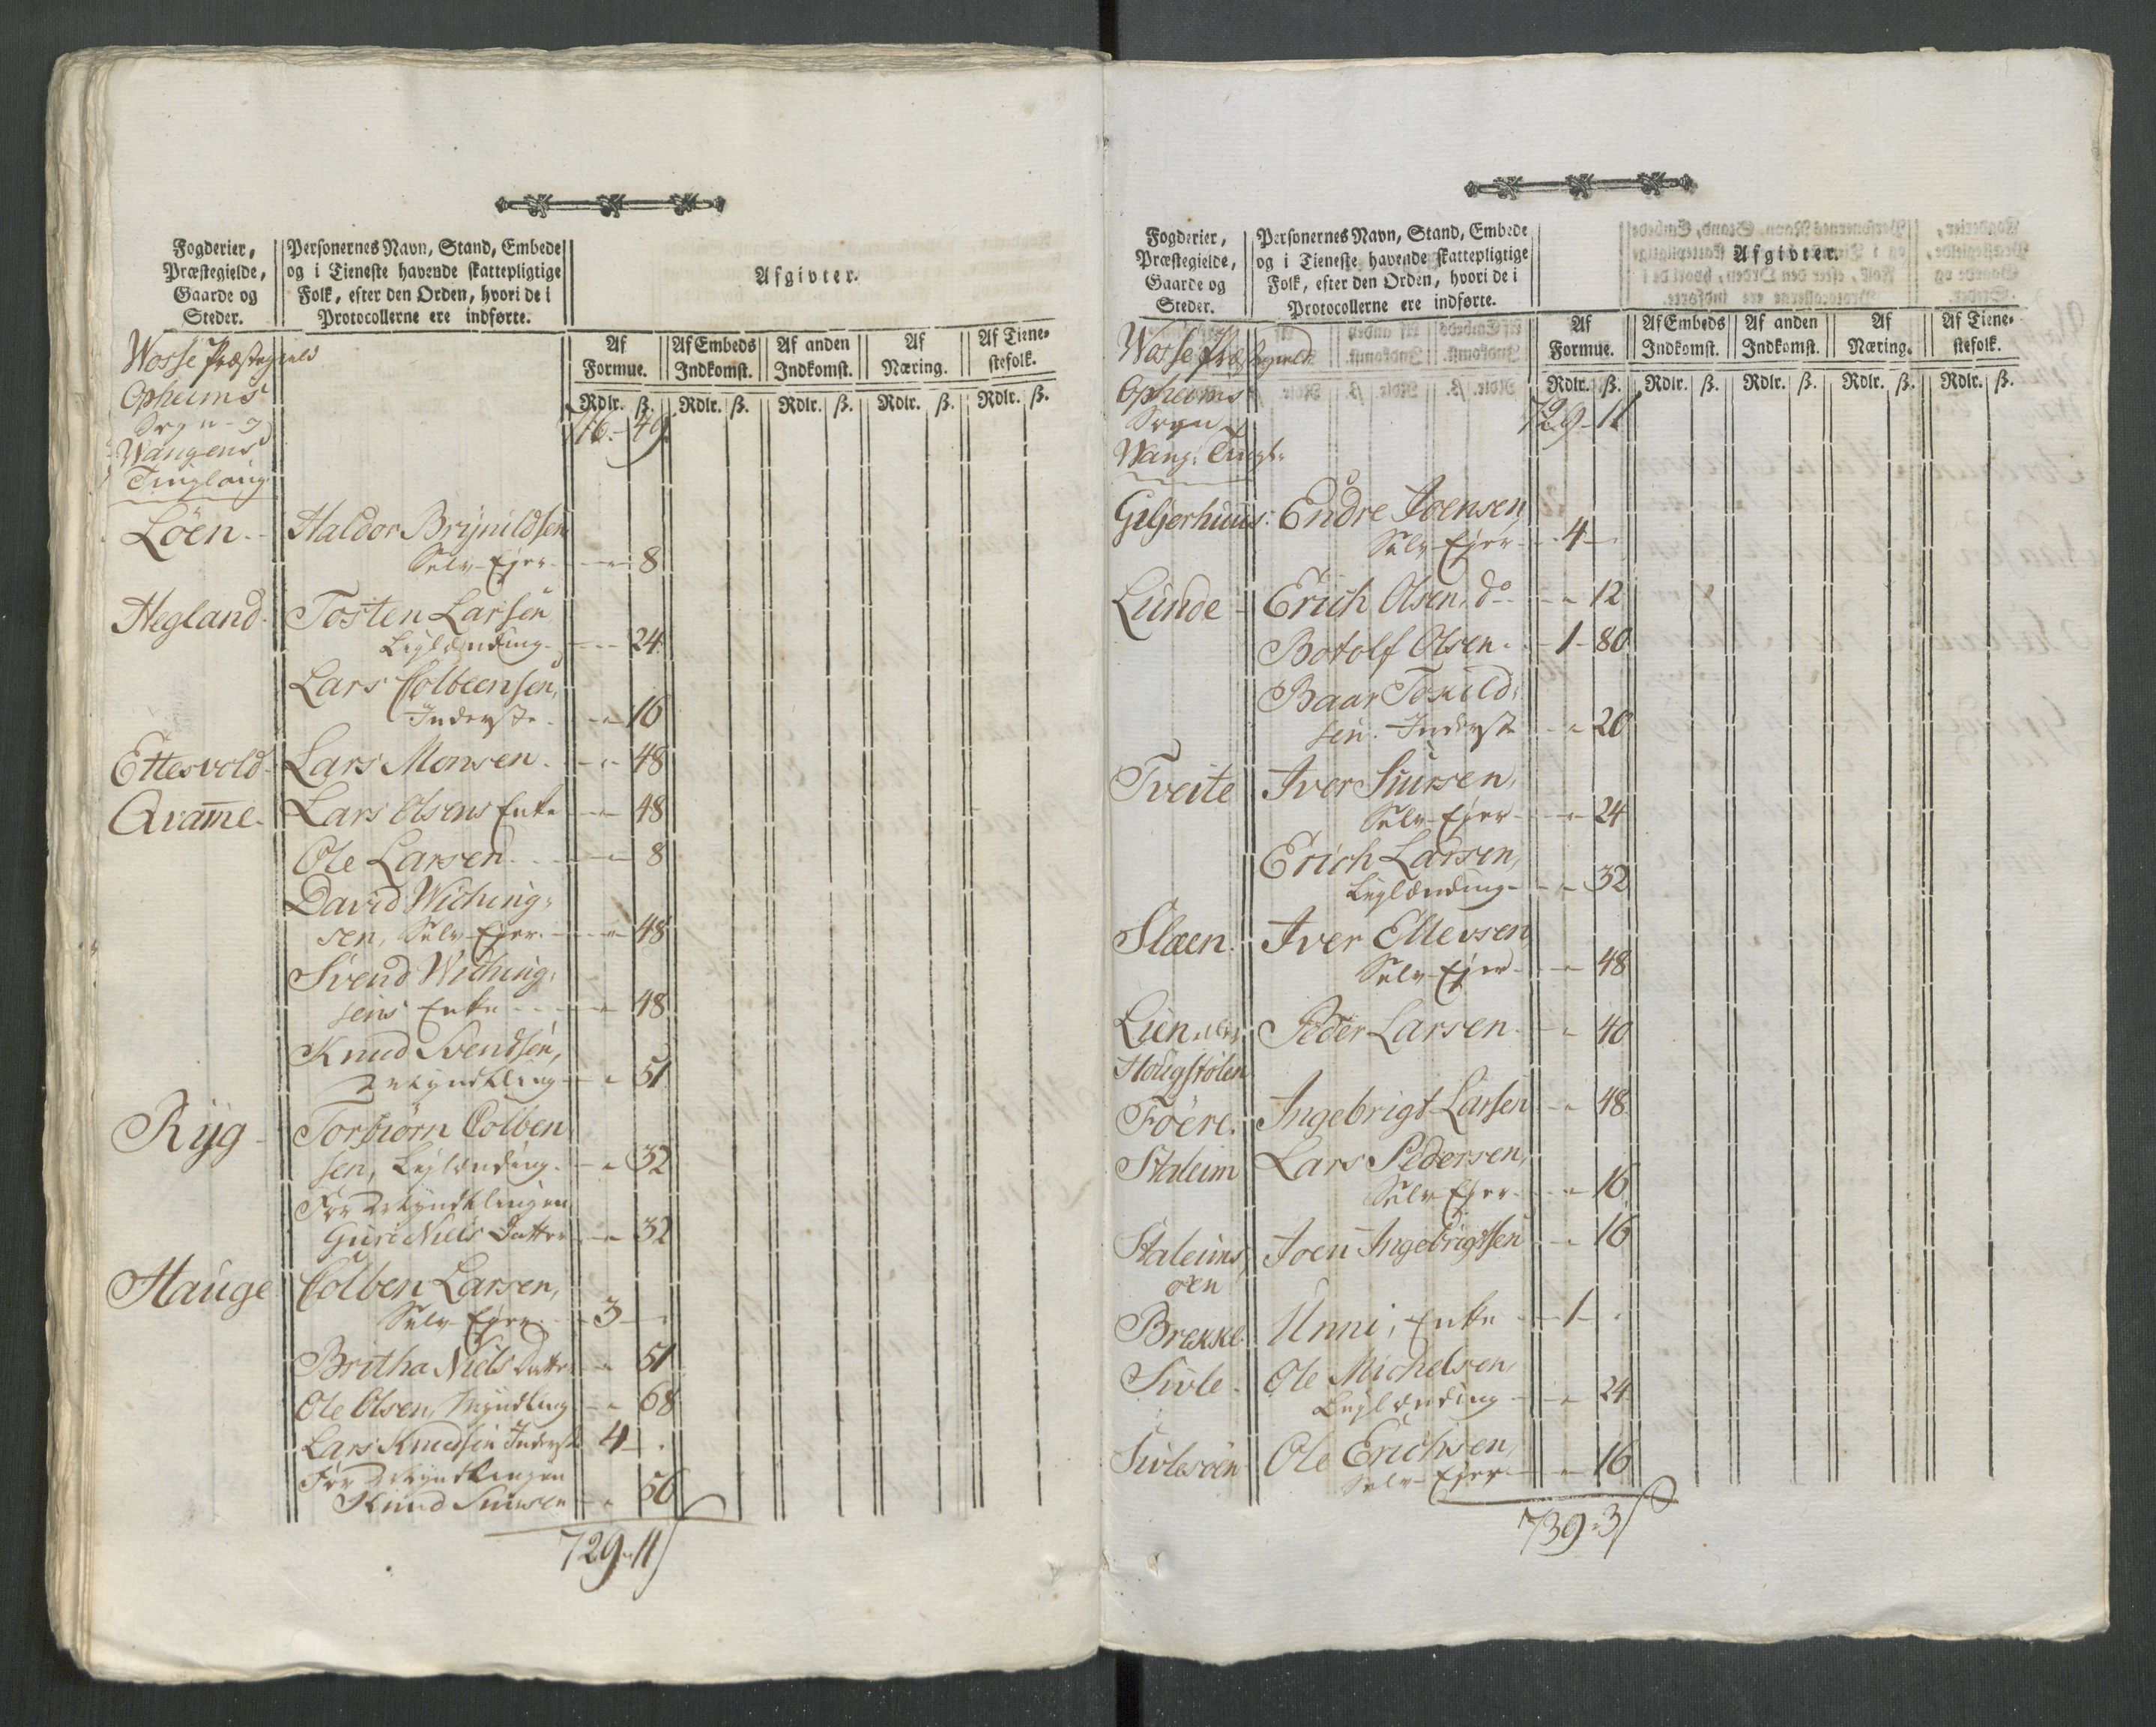 Fogderier,
Præstegielde,
Gaarde og
Steder.
Personernes Navn, Stand, Embede
og i Tieneste havende skattepligtige
Folk, efter den Orden, hvori de i
Protocollerne ere indførte.
Afgivter.
Af
Formue.
Af Embeds
Indkomst.
Af anden
Indkomst.
Af
Næring.
Af Tiene-
stefolk.
Rdlr. ß. Rdlr. ß. Rdlr. ß. Rdlr. ß. Rdlr. ß.
Wosse Præstegield
Opheims
Sogn og
Wangens
Tinglaug
716 - 49
Löen - Haldor Brynildsen
Selv-Ejer - - 8
Hegland - Tosten Larsen
Leylænding - - 24
Lars Colbeensen,
Inderste - - 16
Ettesvold - Lars Monsen - - 48
Qvam̅e - Lars Olsens Enke - - 48
Ole Larsen - - 8
David Wiching-
sen, Selv-Ejer - - 48
Svend Wiching-
sens Enke - - 48
Knud Svendsen,
Myndtling - - 51
Ryg - Torbiörn Colben
sen, Leylænding - - 32
For Myndtlingen
Guri Niels Datter - - 32
Hauge Colben Larsen,
Selv-Ejer - 3 -
Britha Niels Datter - 51
Ole Olsen, Myndtling - - 68
Lars Knudsen Inderste 4 - .
For Myndtlingen
Knud Simsen - - 56
729 - 11
Fogderier,
Præstegielde,
Gaarde og
Steder.
Personernes Navn, Stand, Embede
og i Tieneste havende skattepligtige
Folk, efter den Orden, hvori de i
Protocollerne ere indførte.
Afgivter.
Af
Formue.
Af Embeds
Indkomst.
Af anden
Indkomst.
Af
Næring.
Af Tiene-
stefolk.
Rdlr. ß. Rdlr. ß. Rdlr. ß. Rdlr. ß. Rdlr. ß.
Wosse Præstegield
Opheims
Sogn
Wang: Tingl:
729 - 11
Giljerhuus: Endre Joensen,
Selv-Ejer - 4 -
Lunde - Erich Olsen, do - - 12
Botolf Olsen - 1 - 80
Baar Toxild-
sen. Inderste - - 20
Tveite Iver Siursen,
Selv-Ejer - - 24
Erich Larsen,
Leylænding - - 32
Slaen. Iver Ellevsen
Selv-Ejer - - 48
Lien eller Peder Larsen - - 40
Hougstølen
Föere. Ingebrigt Larsen - - 48
Staleim Lars Pedersen,
Selv-Ejer - - 16
Staleims- Joen Ingebrigtsen - - 16
øen
Brekke. Unni, Enke - 1 - .
Sivle - Ole Michelsen,
Leylænding - - 24
Sivlesöen Ole Erichsen,
Selv-Ejer - - 16
739 - 3